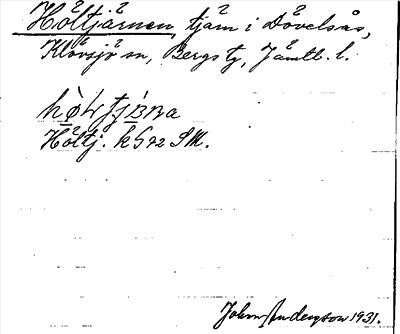 Höltjärnen, tjärn i Dövelsås,
Klövsjö sn, Bergs tg, Jämtl. l.
Höltj. k G72 SM.
John Anderzson 1931.